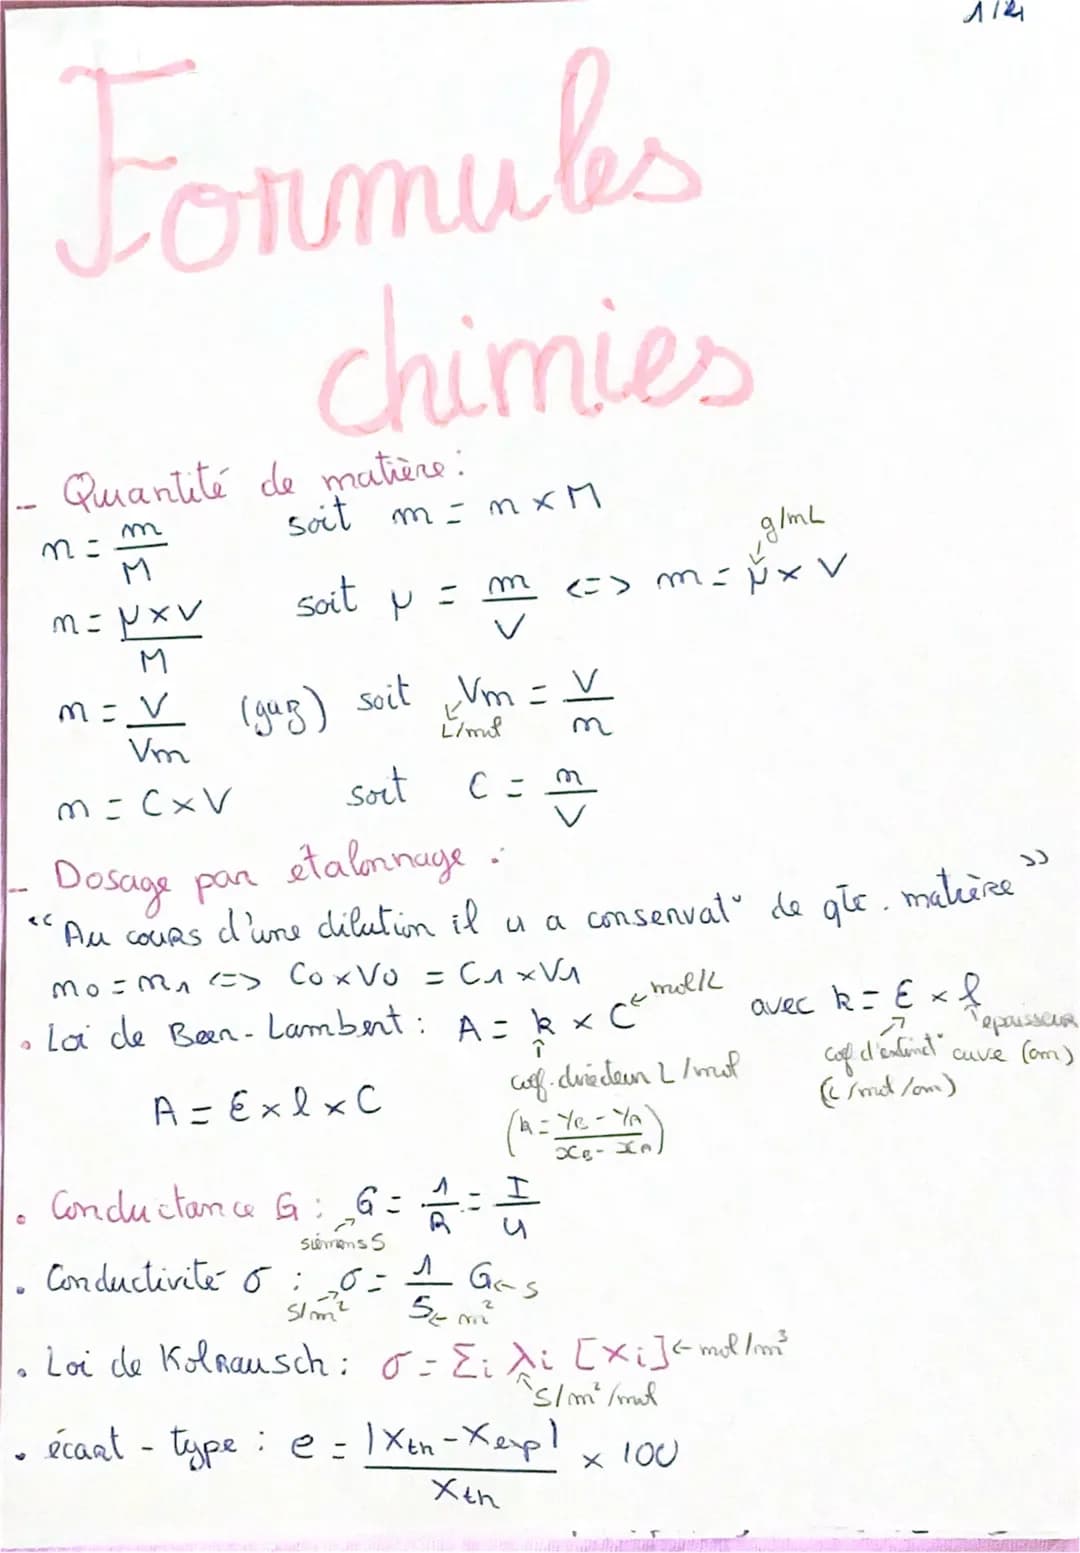 1/2
Formules
chimies
- Quantité de matière :
n = m/M soit m = n × M
g/mL
n = μ×V/M soit μ = m/V <=> m = μ × V
n = V/Vm (gaz) soit Vm = V/n
L/mol
n = C×V soit C = n/V
- Dosage par étalonnage :
"Au cours d'une dilution il y a conservat° de qte. matière"
n0 = n1 <=> C0×V0 = C1×V1
• Loi de Beer-Lambert : A = k × C ← mol/L avec k = ε × l
coef. directeur L/mol
coef d'extinct° (L/mol/cm)
epaisseur cuve (cm)
A = ε × l × C (k = yB - yA / xB - xA)
• Conductance G : G = 1/R = I/U
siémens S
• Conductivité σ : σ = 1/S G ← S
S/m² ← m²
• Loi de Kolrausch : σ = Σi λi [Xi] ← mol/m³
S/m²/mol
• écart-type : e = |Xth - Xexp|/Xth × 100